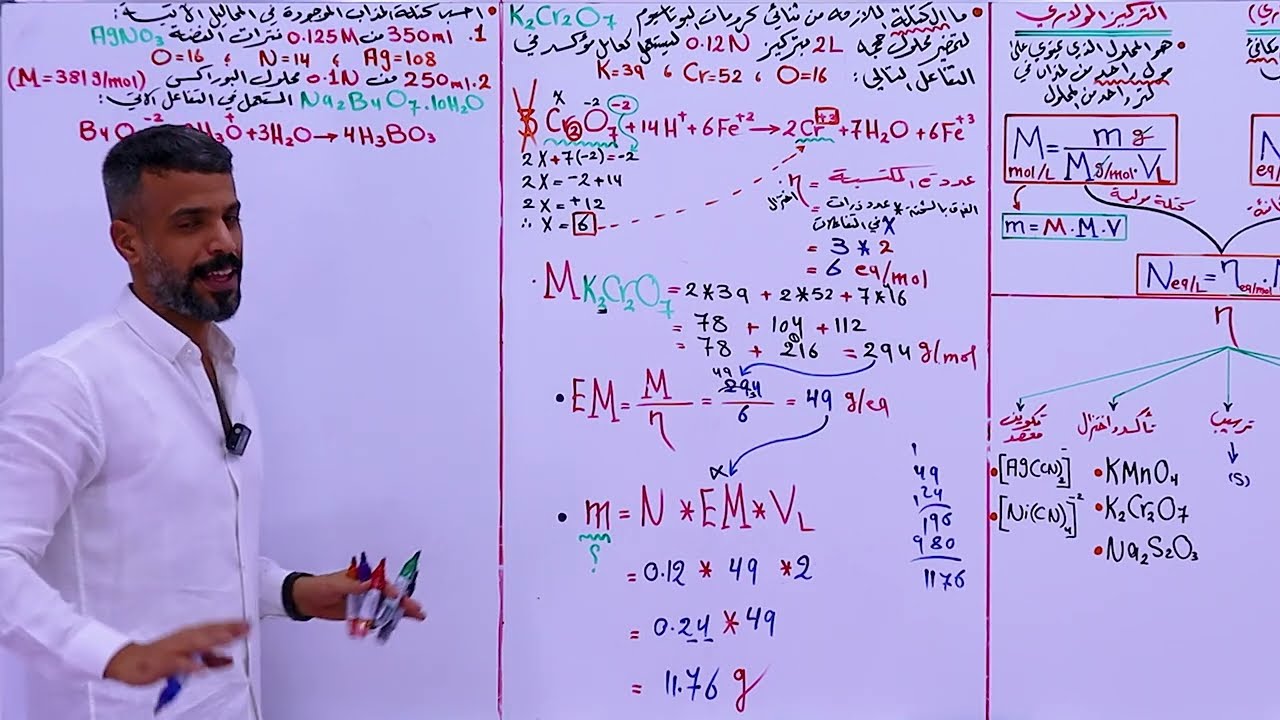 • احسب كتلة المذاب الموجودة في المحاليل الآتية:
1. 350ml من 0.125M نترات الفضة AgNO3
O=16 ، N=14 ، Ag=108
2. 250ml من 0.1N محلول البوراكس (M=381g/mol)
Na2B4O7.10H2O المستعمل في التفاعل الآتي:
+3H2O → 4H3BO3
• ما الكتلة اللازمة من ثنائي كرومات البوتاسيوم K2Cr2O7
لتحضير محلول حجمه 2L وبتركيز 0.12N ليستعمل كعامل مؤكسد في
التفاعل التالي: K=39 ، Cr=52 ، O=16
x -2 -2
Cr2O7 + 14H+ + 6Fe+2 → 2Cr+3 + 7H2O + 6Fe+3
2X + 7(-2) = -2
2X = -2 + 14
2X = +12
∴ X = 6
η = عدد e المكتسبة
اختزال
= الفرق بالشحنة * عدد ذرات X في التفاعلات
= 3 * 2
= 6 eq/mol
• M K2Cr2O7 = 2*39 + 2*52 + 7*16
= 78 + 104 + 112
= 78 + 216 = 294 g/mol
• EM = M/η = 294/6 = 49 g/eq
49
• m = N * EM * VL
?
= 0.12 * 49 * 2
= 0.24 * 49
= 11.76 g
1
49
24
196
980
1176
التركيز المولاري
• هو المحلول الذي يحتوي على
مول واحد من المذاب في
لتر واحد من المحلول
M mol/L = m g / M g/mol . VL
كتلة مولية
m = M . M . V
N eq/L = η eq/mol .
N
eq/
η
تكوين معقد
تأكسد واختزال
ترسيب
(S)
• [Ag(CN)2]-
• [Ni(CN)4]-2
• KMnO4
• K2Cr2O7
• Na2S2O3